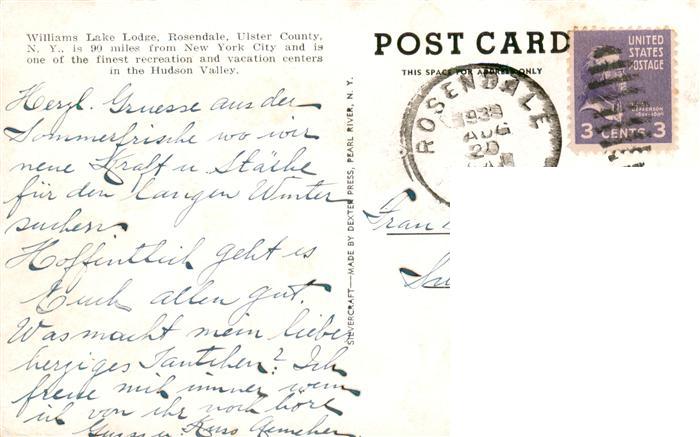 Williams Lake Lodge, Rosendale, Ulster County,
N. Y., is 90 miles from New York City and is
one of the finest recreation and vacation centers
in the Hudson Valley.
POST CARD
THIS SPACE FOR ADDRESS ONLY
UNITED
STATES
POSTAGE
JEFFERSON
3 CENTS 3
ROSENDALE
AUG
20
SILVERCRAFT—MADE BY DEXTER PRESS, PEARL RIVER, N. Y.
Herzl. Gruesse aus der
Sommerfrische wo wir
neue Kraft u. Stärke
für den langen Winter
suchen.
Hoffentlich geht es
Euch allen gut.
Was macht mein lieber
herziges Tantchen? Ich
freue mich immer wenn
ich von ihr noch höre
Gruss u. Kuss
Frau